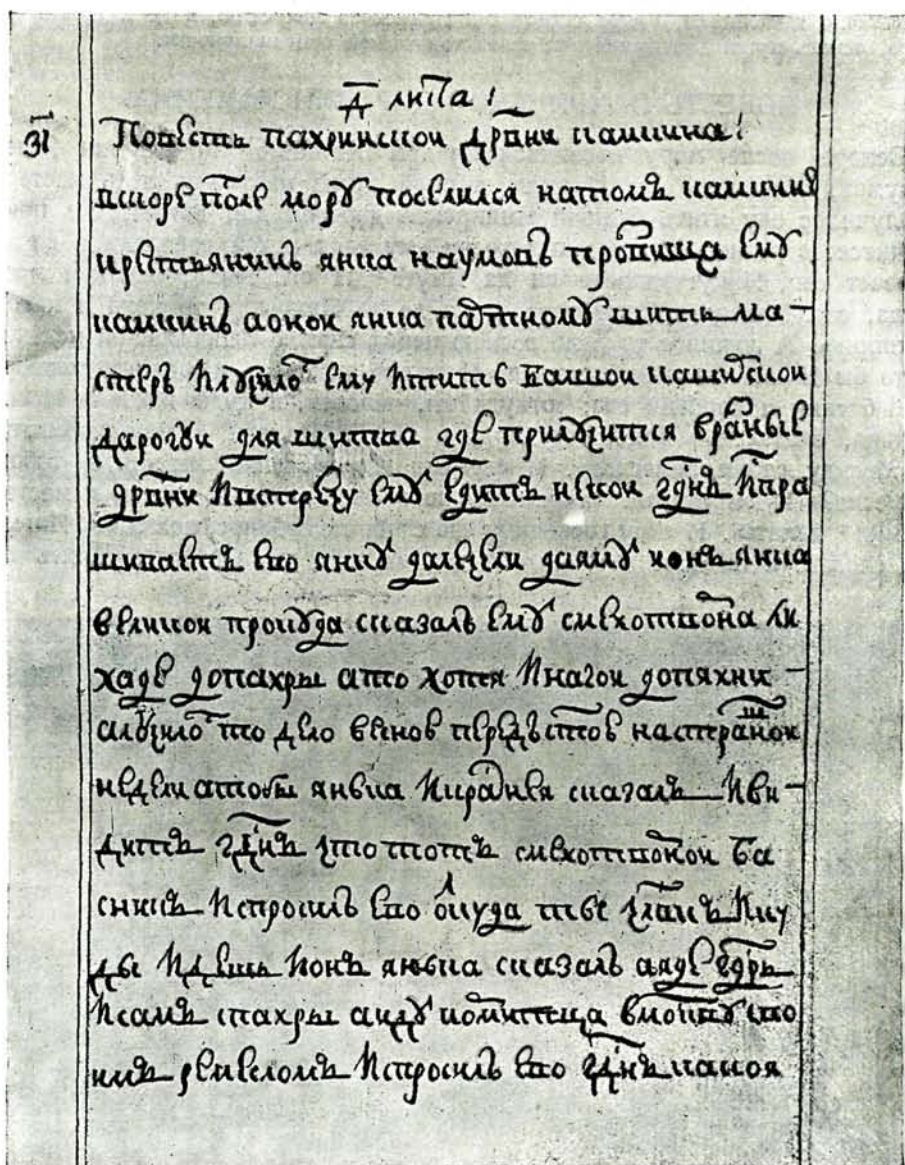 А҃ листа !
з҃і
Повѣсть пахринскои дрвни камкина !
вскоре поле мору поселился натомъ камкинѣ
крестьянинъ янка наумовъ прозвища ему
камкинъ аонои янка партному шить ма-
стеръ ислѹчило ему иттить болшои каширскои
дарогѹи для шитва где прилѹчитца вразные
дрвни ивстречу емѹ едитъ некои гднъ исра
шиваетъ ево янкѹ далечели даямѹ ионъ янка
великои проиѹда сказалъ емѹ смехотворна ли
хаде допахры ато хотя инагои допяхни
слѹчило то дело венов передъ гтов настрашнои
недели атобы янька икраднея сказалъ иви-
дитъ гднъ что тотъ смехотворнои ба
сникъ испросилъ ево окуда тые члвкъ ику
ды идешь ионъ янька сказалъ аяде гдрь
исамъ спахры аидѹ кормитца вмоскву сво
имъ ремесломъ испросилъ ево гднъ какоя